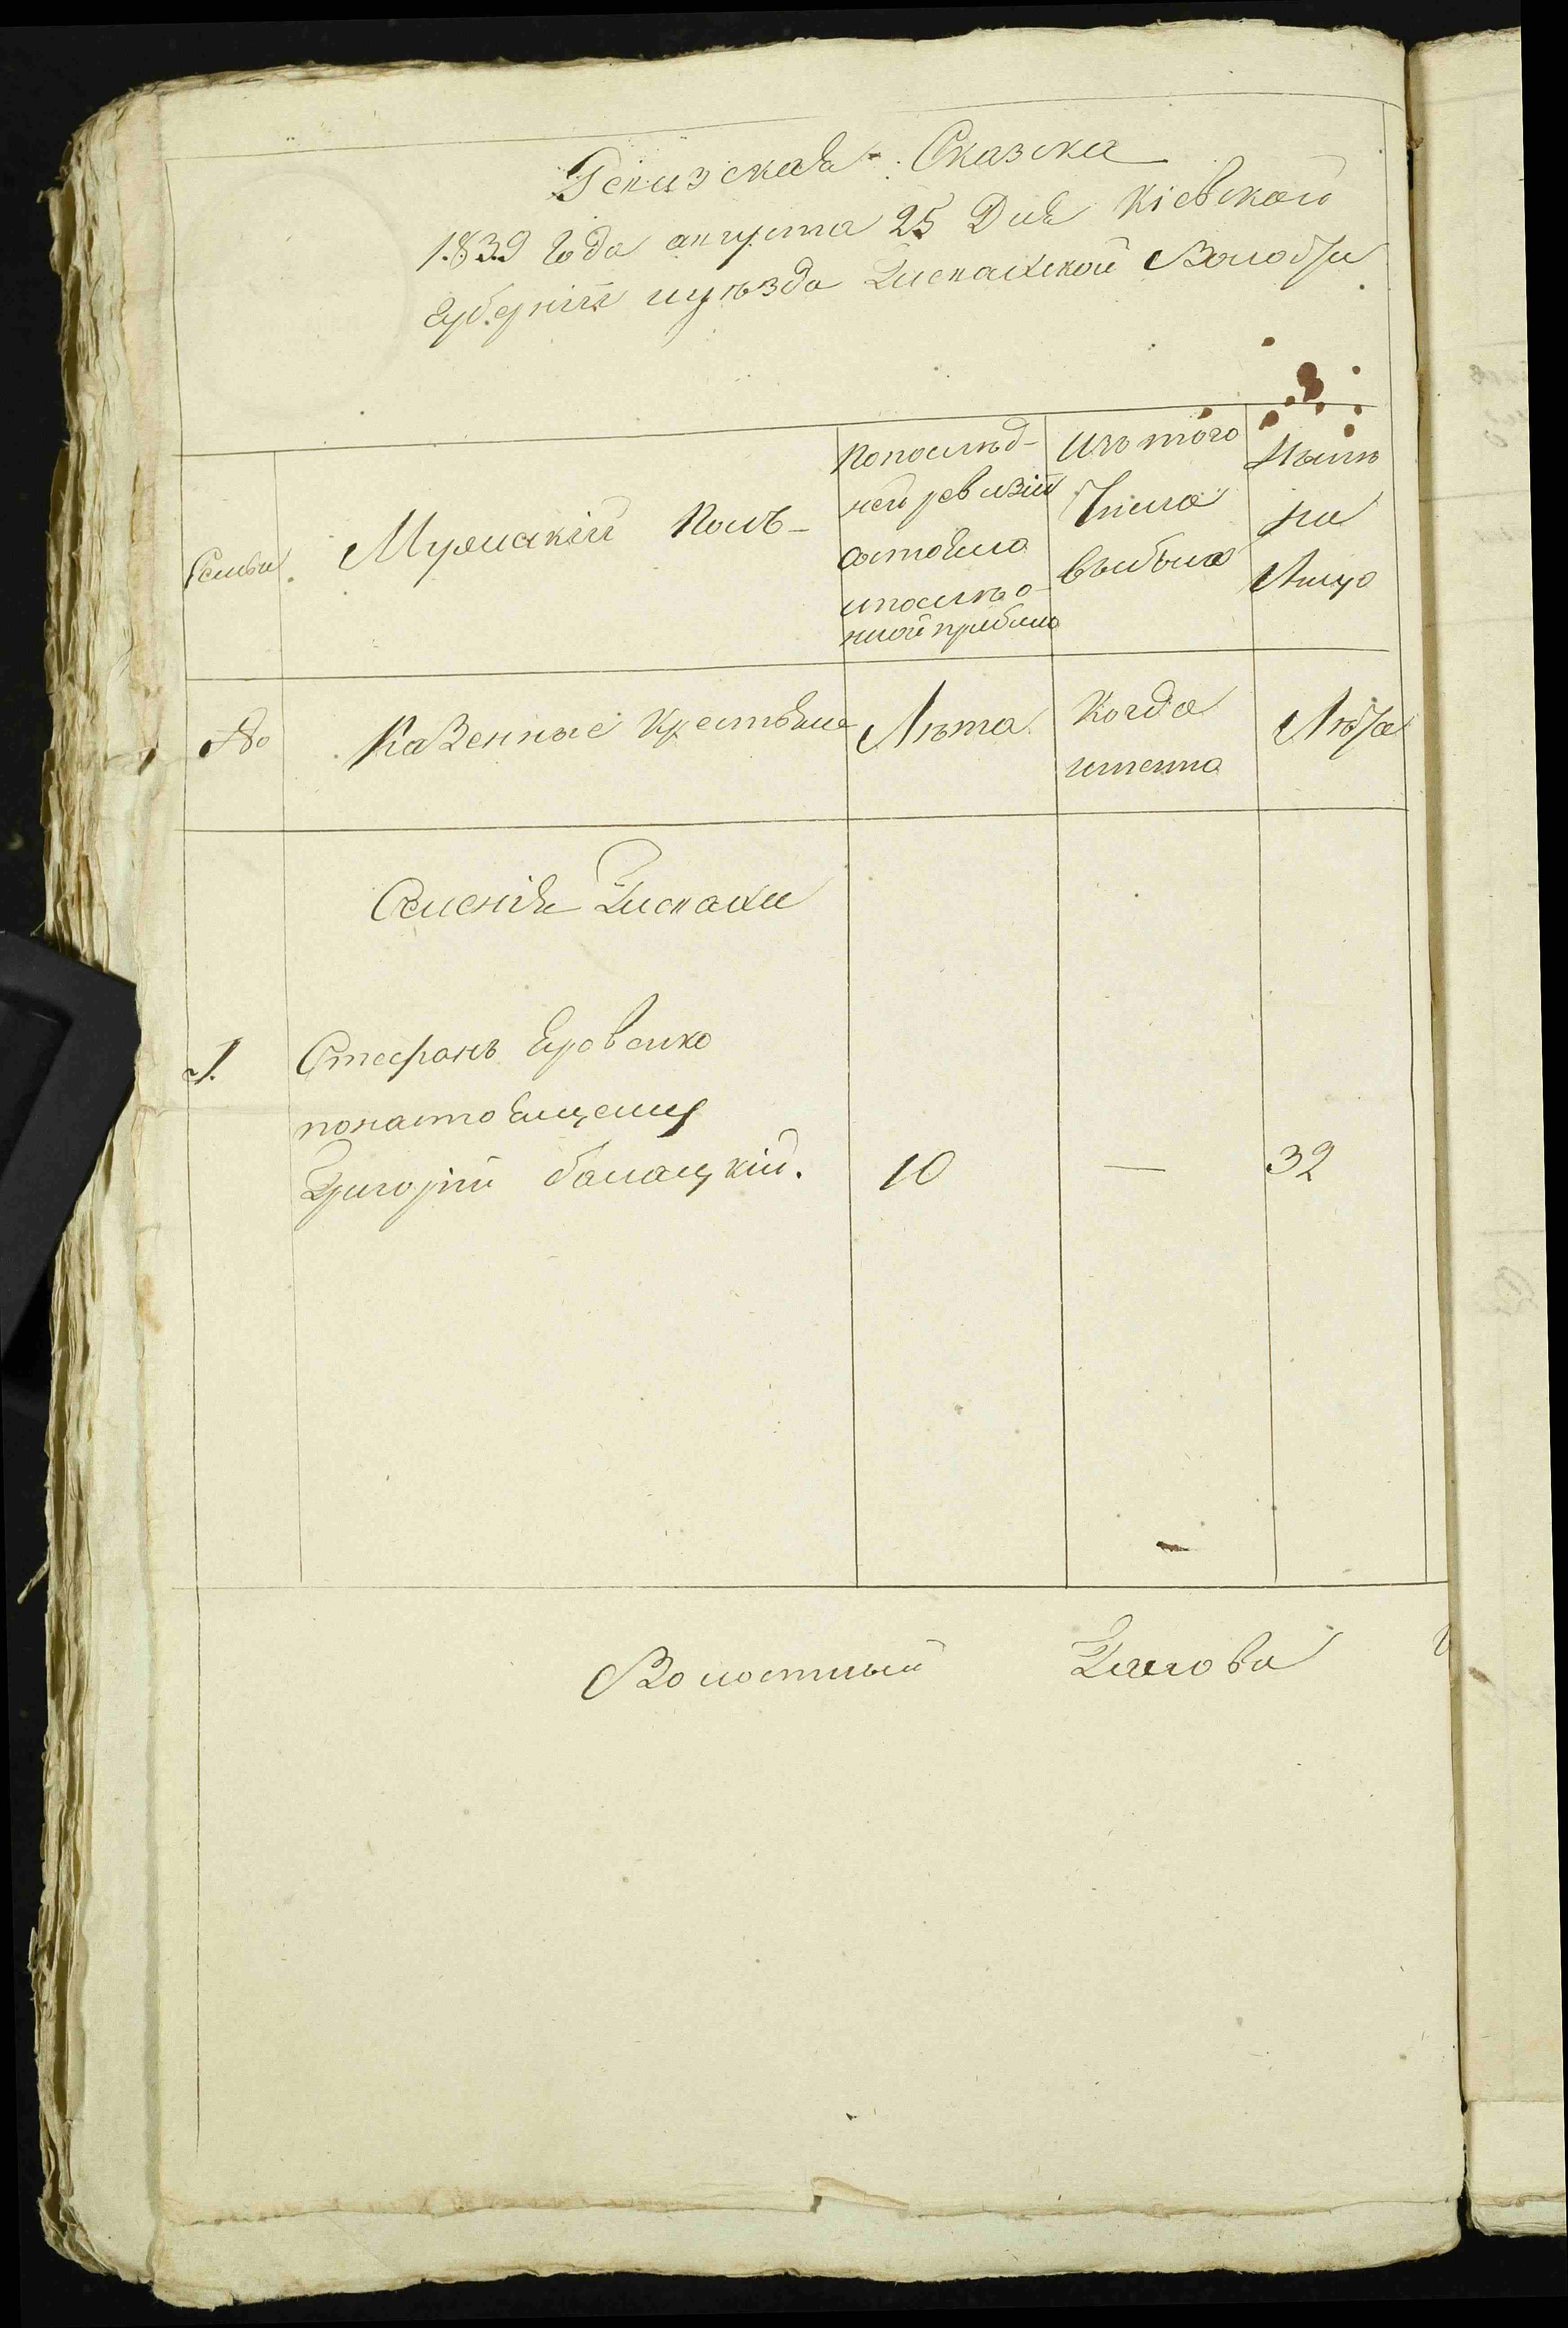 Ревизская Сказка
1839 года августа 25 Дня Кіевской
Губерніи и уѣзда Гнепажской Волости
Семьи
Мужескій Полъ
По послѣд-
ней ревизіи
состояло
и послѣ о-
ной прибыло
Изъ того
Числа
выбыло
Нынѣ
на
Лицо
№
Казенные Крестьяне
Лѣта
Когда
именно
Лѣта
Селенія
1.
Стефанъ Яровенко
по настоящему
Григорій балацкій.
10
—
32
Волостный Голова